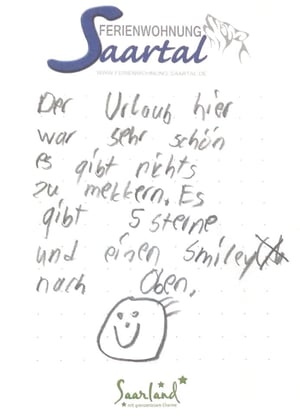 FERIENWOHNUNG
Saartal
WWW.FERIENWOHNUNG-SAARTAL.DE
Der Urlaub hier
war sehr schön
es gibt nichts
zu mekkern. Es
gibt 5 sterne
und einen Smiley
nach Oben.
Saarland
mit grenzenlosem Charme